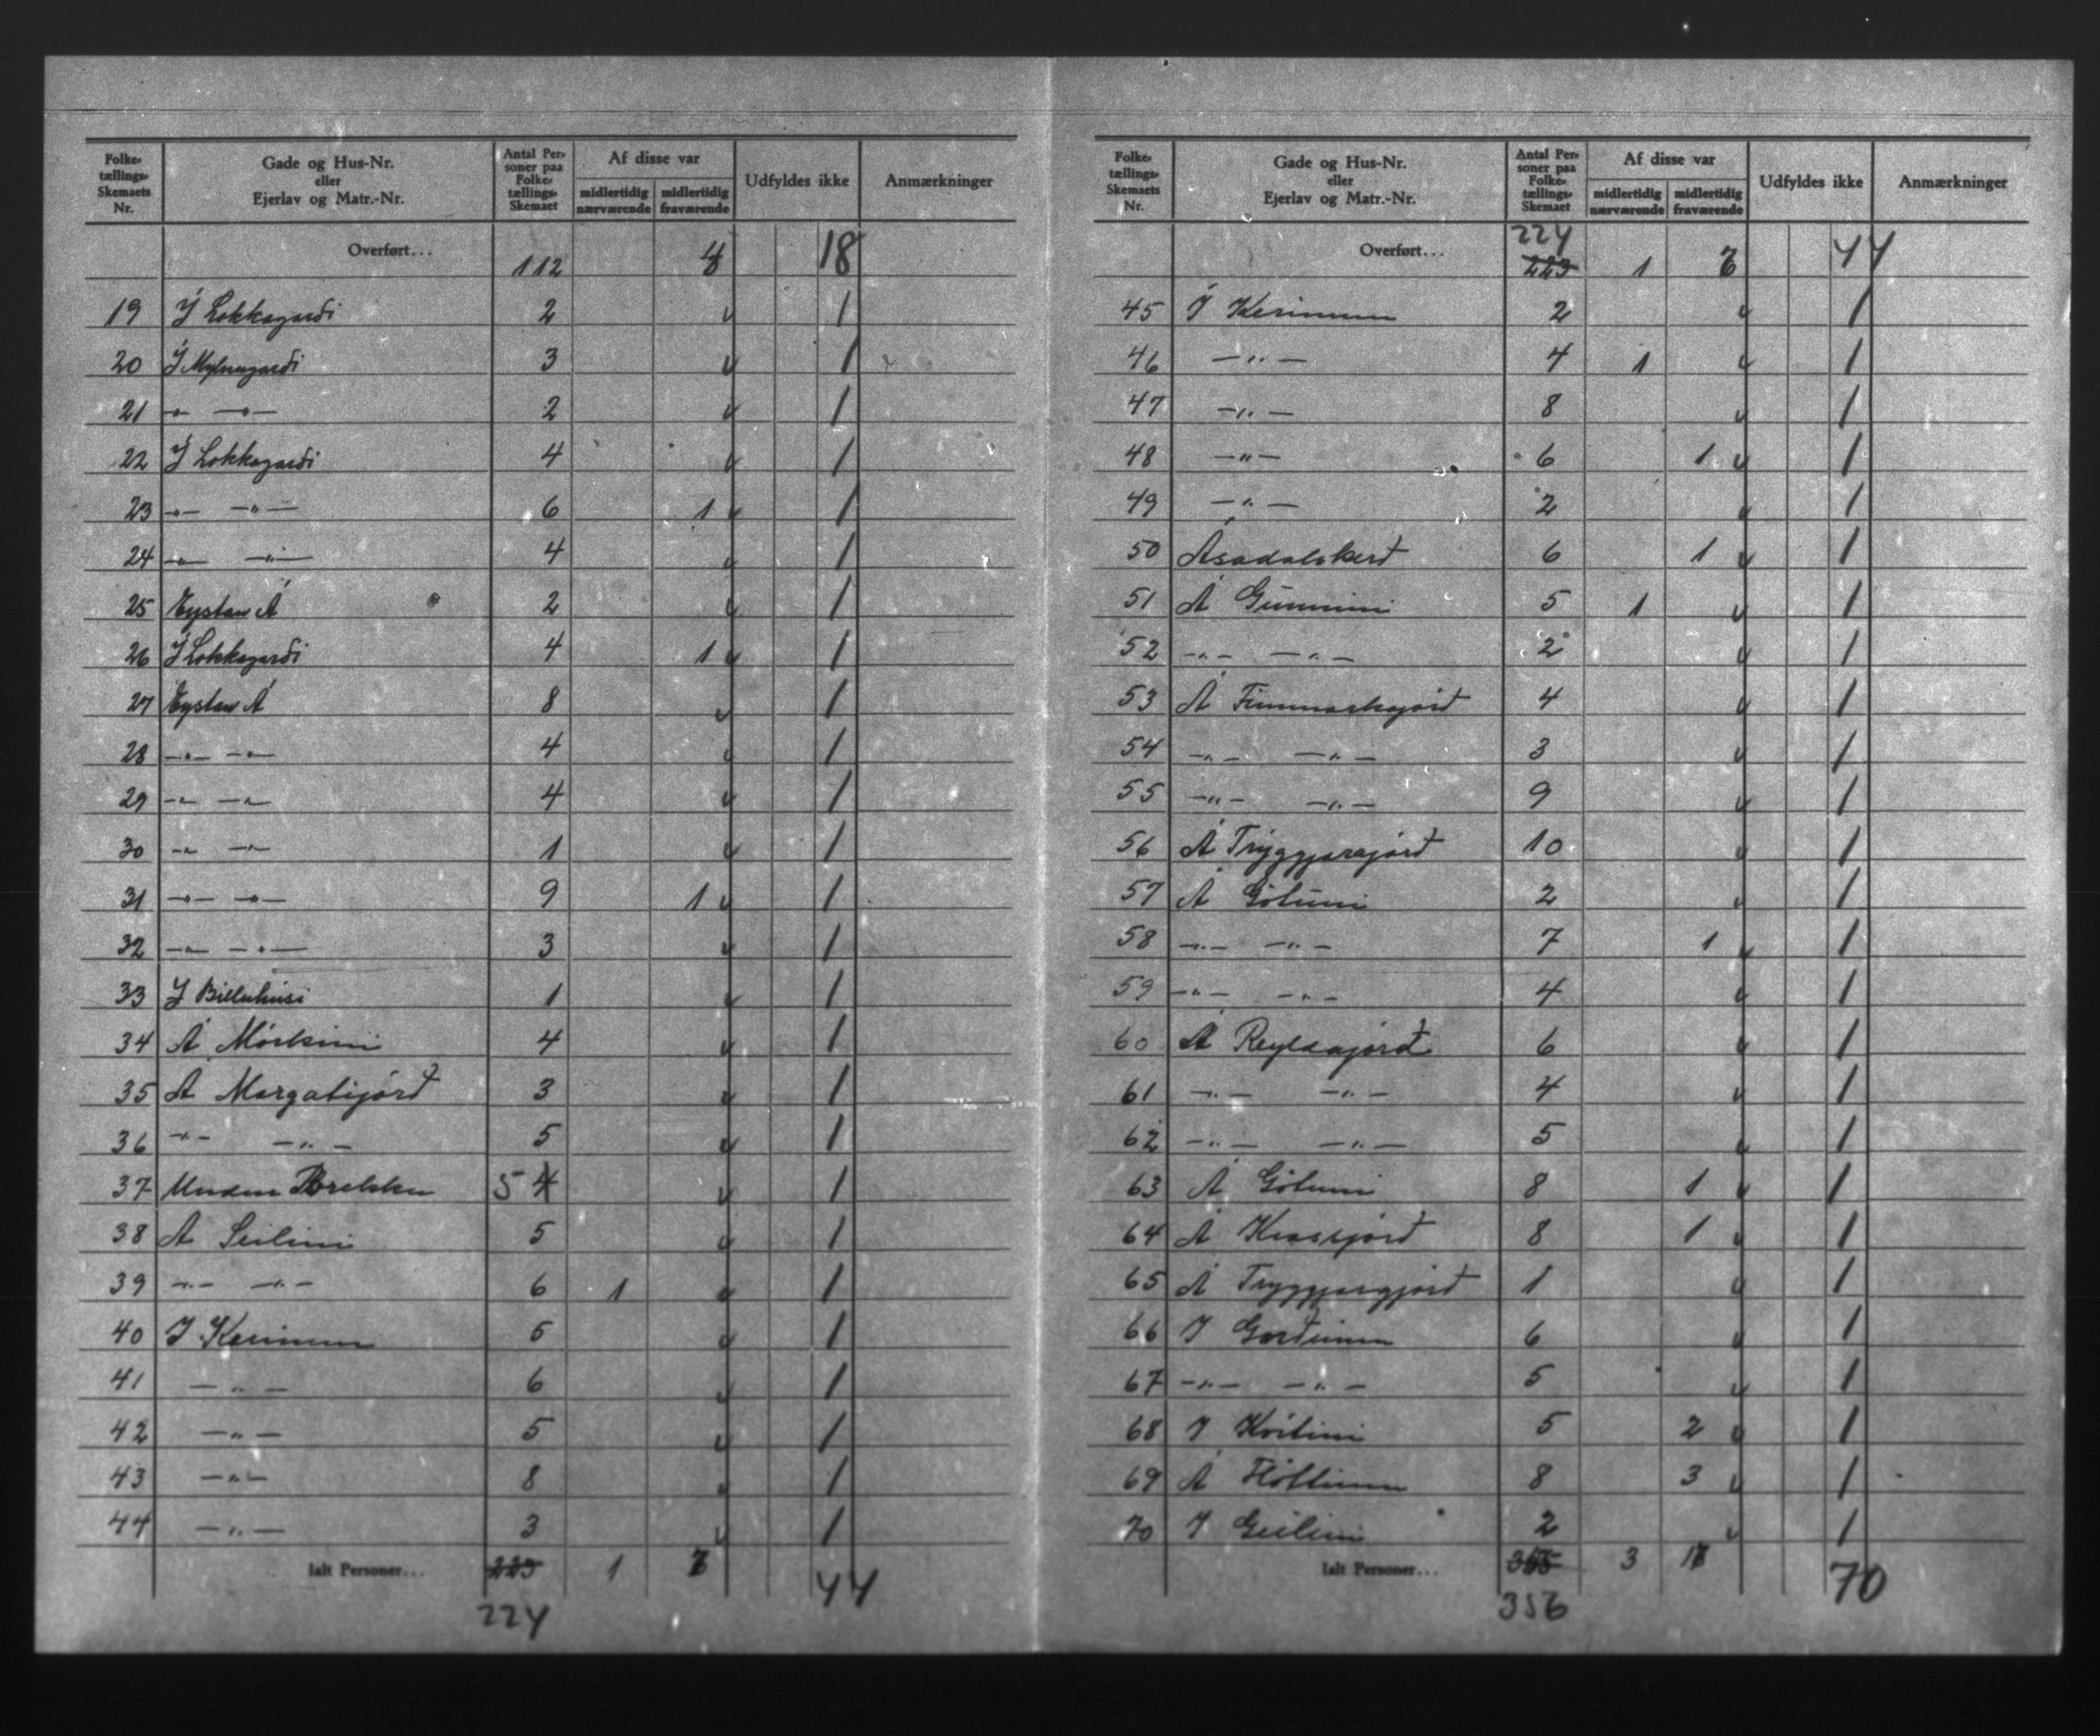 Folketællings-Skemaets Nr. | Gade og Hus-Nr. eller Ejerlav og Matr.-Nr. | Antal Personer paa Folketællings-Skemaet | Af disse var midlertidig nærværende | midlertidig fraværende | Udfyldes ikke | Anmærkninger
Overført... 112 4 18
19 Í Lokkagarði 2 v 1
20 Í Mylnugarði 3 v 1
21 -"- -"- 2 v 1
22 Í Lokkagarði 4 v 1
23 -"- -"- 6 1 v 1
24 -"- -"- 4 v 1
25 Eystan Á 2 v 1
26 Í Lokkagarði 4 1 v 1
27 Eystan Á 8 v 1
28 -"- -"- 4 v 1
29 -"- -"- 4 v 1
30 -"- -"- 1 v 1
31 -"- -"- 9 1 v 1
32 -"- -"- 3 v 1
33 Í Billuhúsi 1 v 1
34 Á Mórkini 4 v 1
35 Á Margatijørð 3 v 1
36 -"- -"- 5 v 1
37 Undir Brekku 5 4 v 1
38 Á Seilini 5 v 1
39 -"- -"- 6 1 v 1
40 Í Kerinum 5 v 1
41 -"- 6 v 1
42 -"- 5 v 1
43 -"- 8 v 1
44 -"- 3 v 1
Ialt Personer... 223 1 7 44
224
Folketællings-Skemaets Nr. | Gade og Hus-Nr. eller Ejerlav og Matr.-Nr. | Antal Personer paa Folketællings-Skemaet | Af disse var midlertidig nærværende | midlertidig fraværende | Udfyldes ikke | Anmærkninger
224
Overført... 223 1 7 44
45 Í Kerinum 2 v 1
46 -"- 4 1 v 1
47 -"- 8 v 1
48 -"- 6 1 v 1
49 -"- 2 v 1
50 Ásadalskerð 6 1 v 1
51 Á Gúnnini 5 1 v 1
52 -"- -"- 2 v 1
53 Á Finnmarksjørð 4 v 1
54 -"- -"- 3 v 1
55 -"- -"- 9 v 1
56 Á Tryggjarajørð 10 v 1
57 Á Gøtuni 2 v 1
58 -"- -"- 7 1 v 1
59 -"- -"- 4 v 1
60 Á Reyldajørð 6 v 1
61 -"- -"- 4 v 1
62 -"- -"- 5 v 1
63 Á Gøtuni 8 1 v 1
64 Á 8 1 v 1
65 Á Tryggjargjørð 1 v 1
66 Í Gørðunum 6 v 1
67 -"- -"- 5 v 1
68 Í Kvítini 5 2 v 1
69 Á Fløttinum 8 3 v 1
70 Í Geilini 2 v 1
Ialt Personer... 355 3 70
356